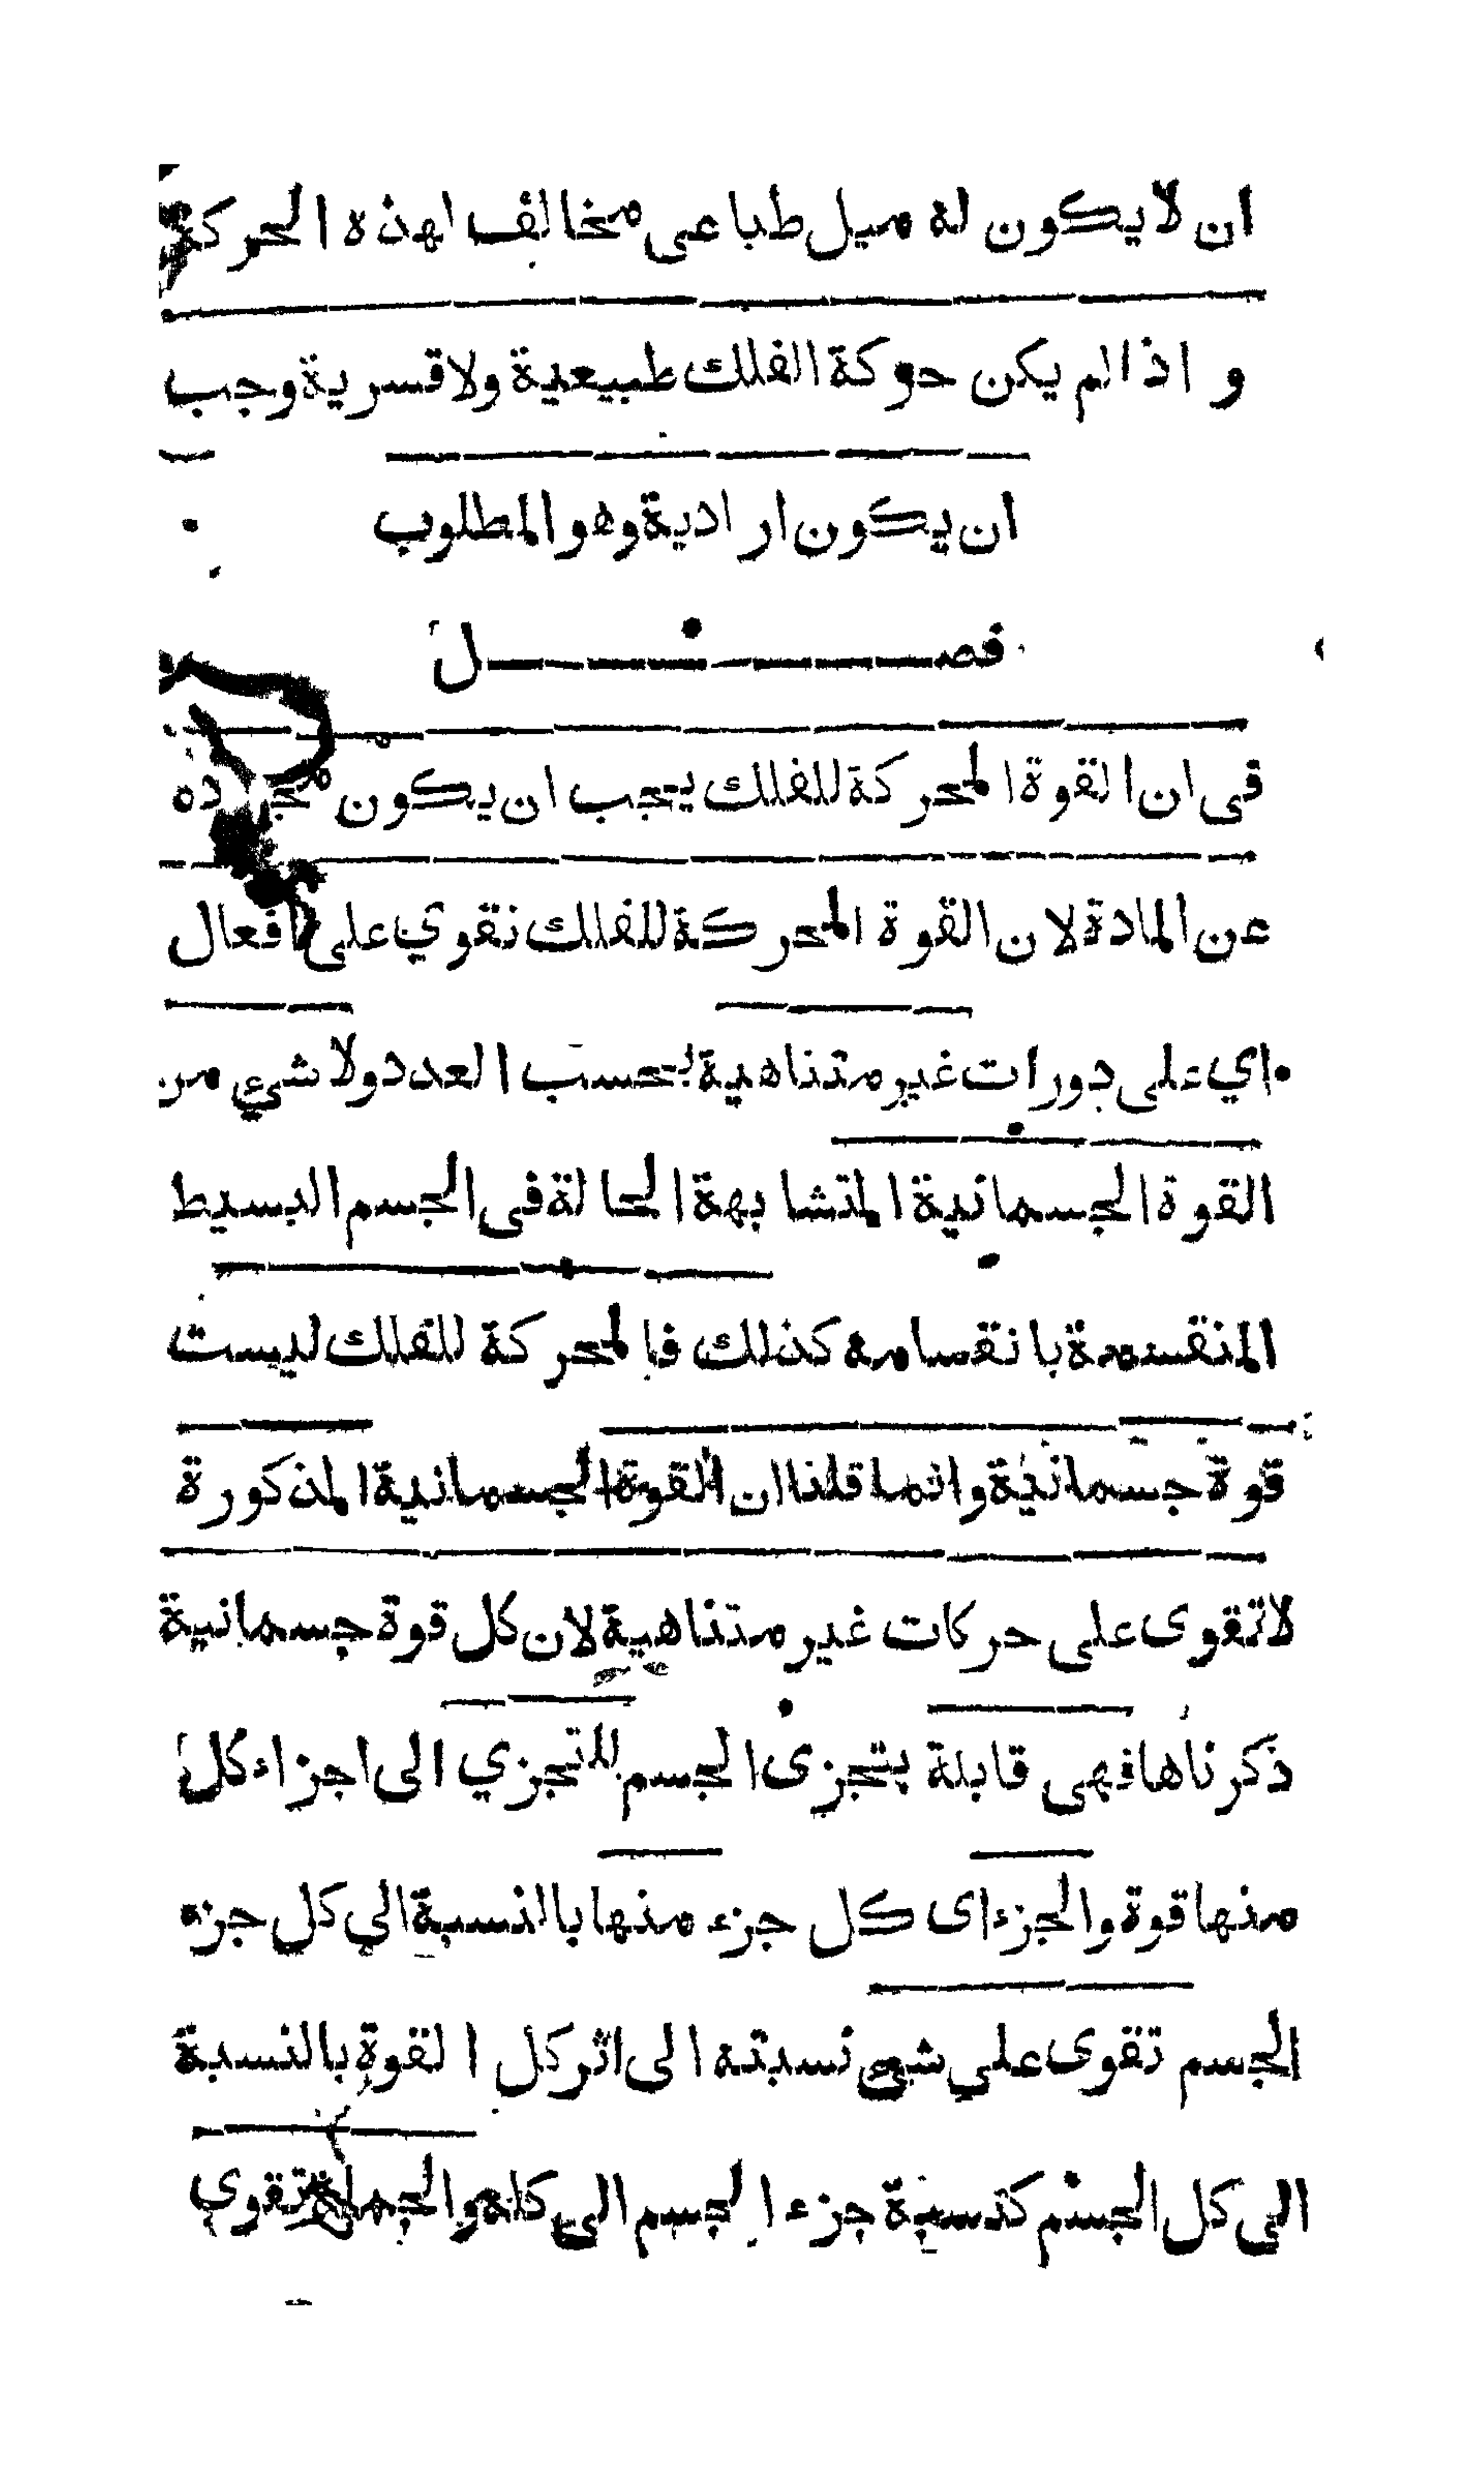 ان لا يكون له ميل طباعى مخالف لهذه الحركة
و اذا لم يكن حركة الفلك طبيعية ولا قسرية وجب
ان يكون ارادية وهو المطلوب
فصل
فى ان القوة المحركة للفلك يجب ان يكون مجردة
عن المادة لان القوة المحركة للفلك تقوي على افعال
اي على دورات غير متناهية بحسب العدد ولا شيء من
القوة الجسمانية المتشابهة الحالة فى الجسم البسيط
المنقسمة بانقسامه كذلك فالمحركة للفلك ليست
قوة جسمانية وانما قلنا ان القوة الجسمانية المذكورة
لا تقوى على حركات غير متناهية لان كل قوة جسمانية
ذكرناها فهى قابلة بتجزى الجسم للتجزي الى اجزاء كل
منها قوة والجزء اى كل جزء منها بالنسبة الي كل جزء
الجسم تقوى علي شيء نسبته الى اثر كل القوة بالنسبة
الى كل الجسم كنسبة جزء الجسم الى كله والجملة تقوي